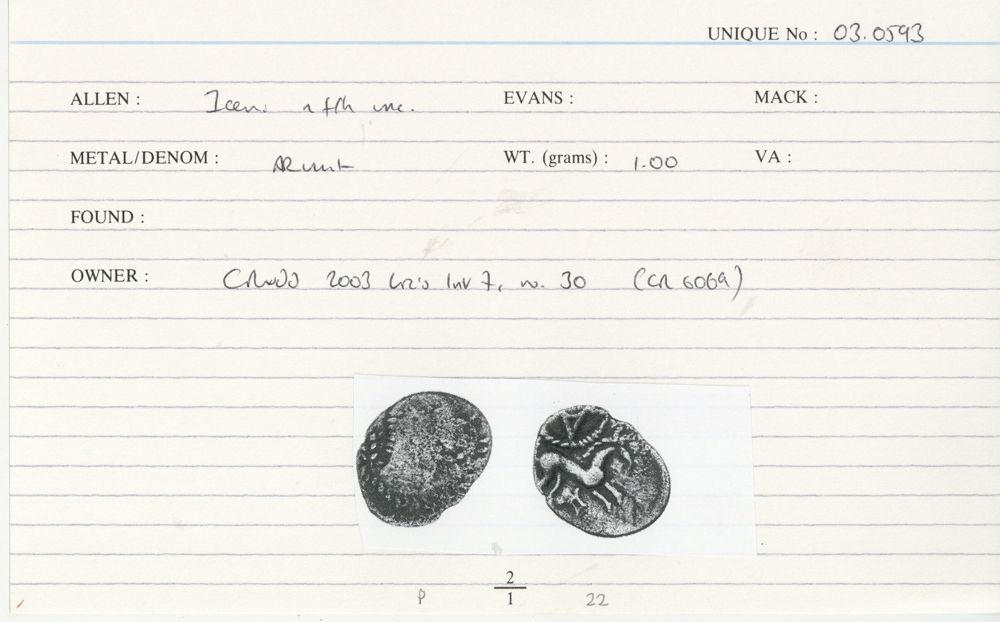 UNIQUE No : 03.0593
ALLEN : Iceni EVANS : MACK :
METAL/DENOM : AR unit WT. (grams) : 1.00 VA :
FOUND :
OWNER : 2003 no. 30 (CR 6069)
2
P 1 22